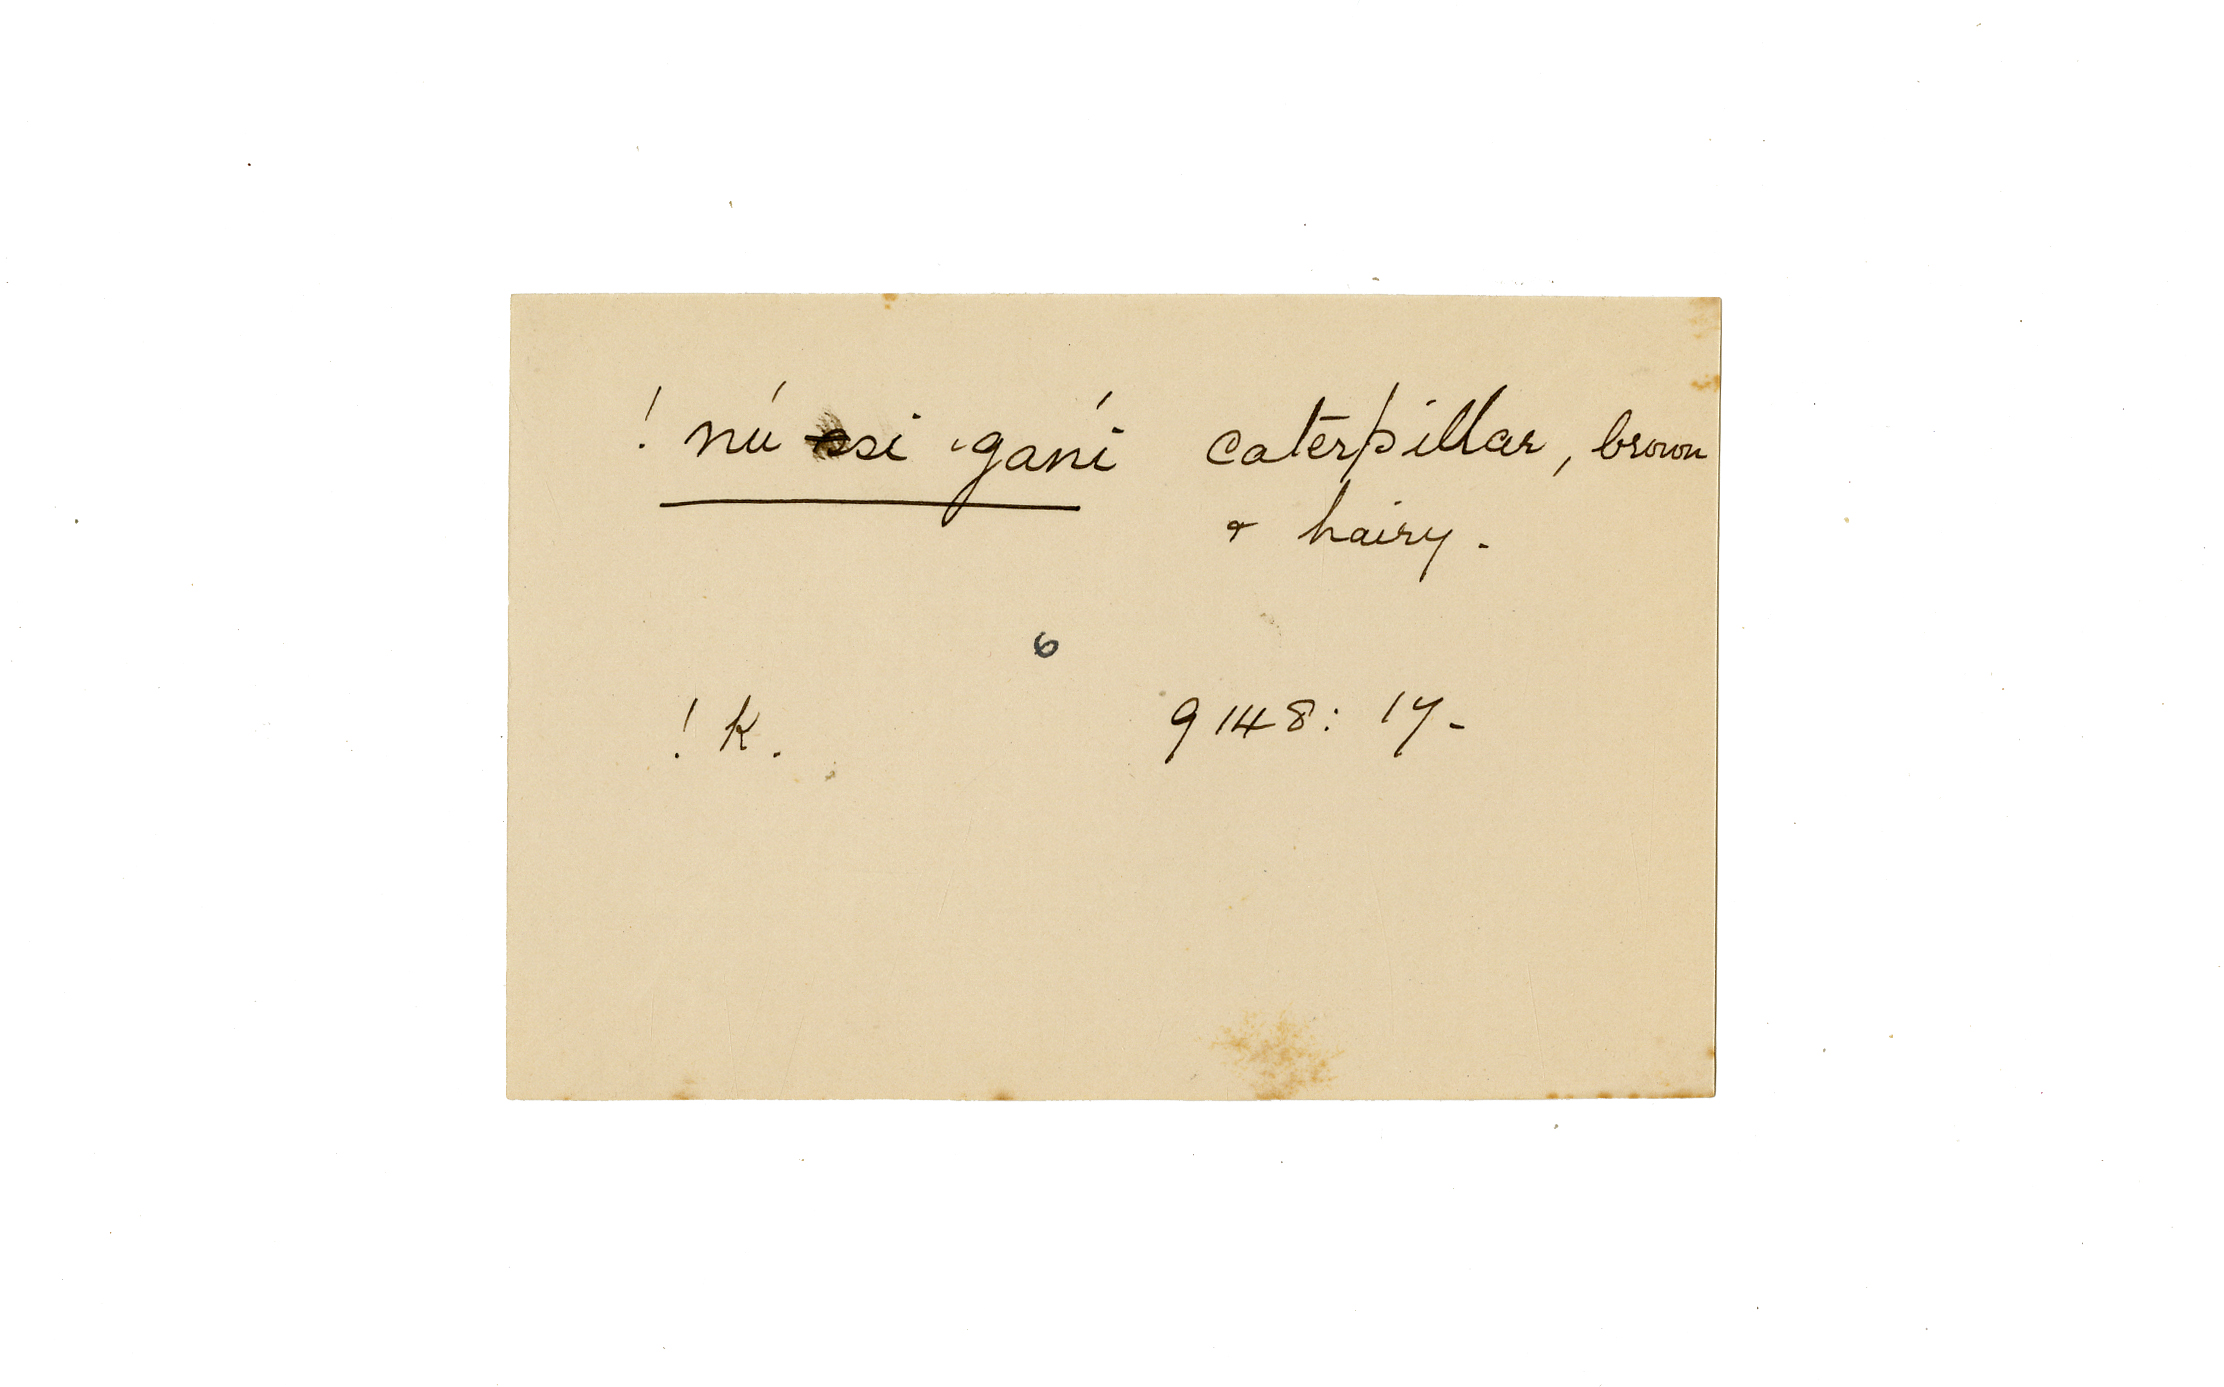 ! nú ssi gańi caterpillar, brown
& hairy.
6
! k. 9148: 17-